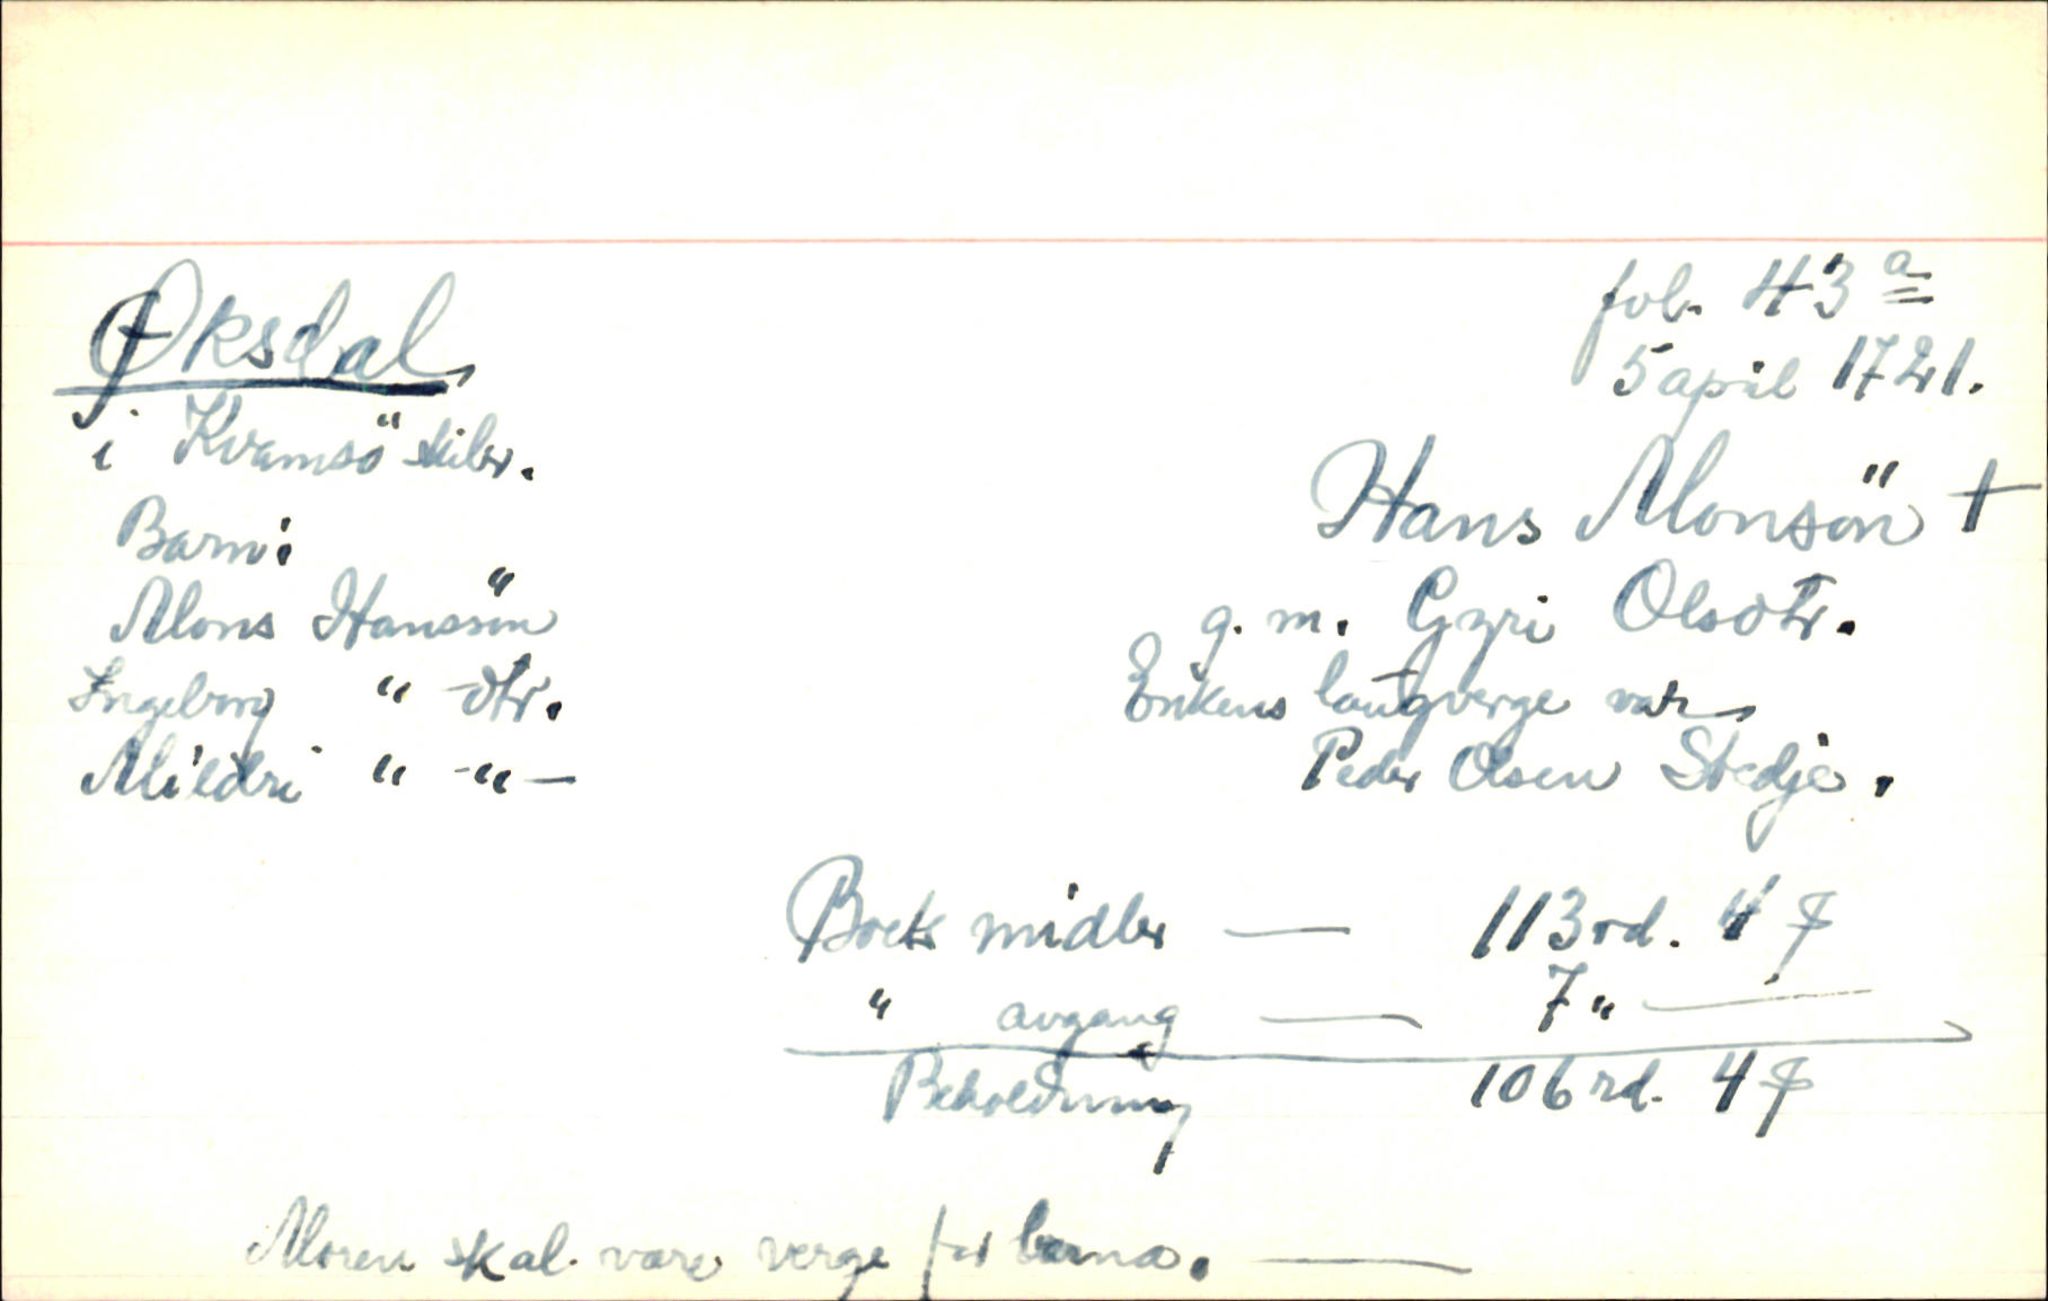 Øksdal
i Kvamsö skibr.
Barn:
Mons Hanssön
Ingeborg " dtr.
Mildri " -"-
fol. 43 a
5 april 1721.
Hans Monsön +
g. m. Gyri Olsdtr.
Enkens laugverge var
Peder Olsen Stedje.
Boets midler — 113 rd. 4 ꝭ
" avgang — 7 " —
Beholdning 106 rd. 4 ꝭ
Moren skal være verge for barna. —